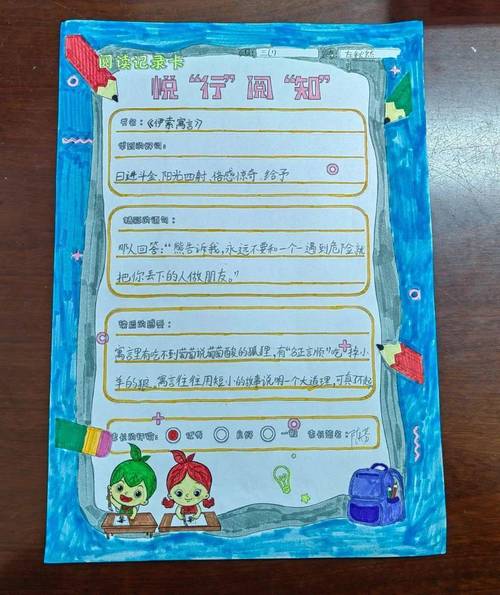 阅读记录卡
三(1)
悦“行”阅“知”
书名:《伊索寓言》
学到的好词:
日进斗金、阳光四射、倍感惊奇、给予
精彩的语句:
那人回答:“熊告诉我,永远不要和一个一遇到危险就
把你丢下的人做朋友。”
读后的感受:
寓言里有吃不到葡萄说葡萄酸的狐狸,有“名正言顺”吃掉小
羊的狼。寓言往往用短小的故事说明一个大道理,可真了不起
家长的评价: 优秀 良好 一般 家长签名: